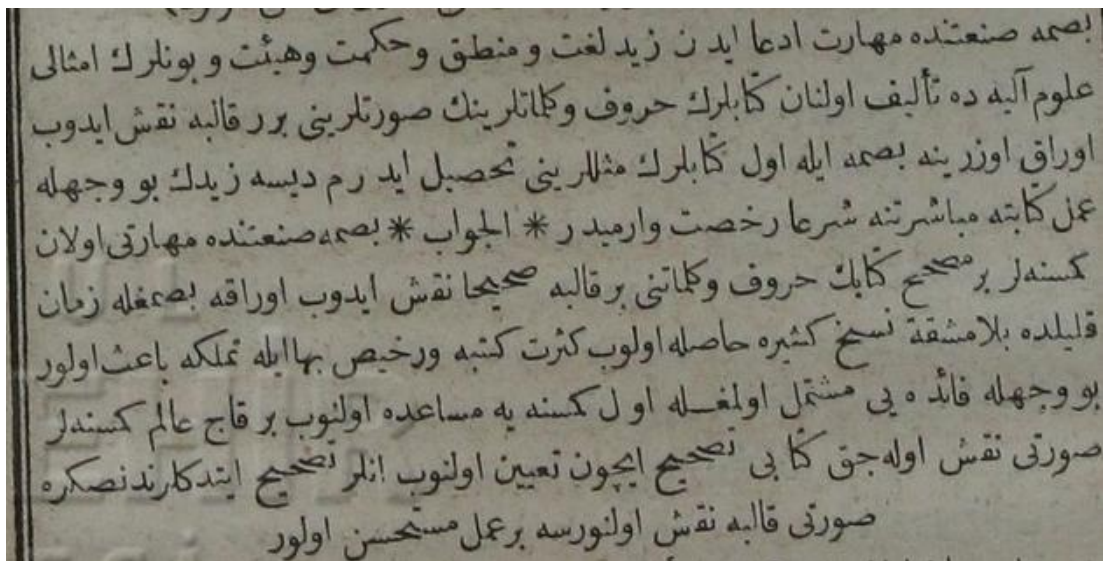 بصمه صنعتنده مهارت ادعا ايدن زيد لغت و منطق و حكمت وهيئت و بونلرك امثالى
علوم آليه ده تأليف اولنان كتابلرك حروف وكلماتلرينك صورتلرينى برر قالبه نقش ايدوب
اوراق اوزرينه بصمه ايله اول كتابلرك مثللرينى تحصيل ايدرم ديسه زيدك بو وجهله
عمل كتابته مباشرتنه شرعا رخصت وارميدر * الجواب * بصمه صنعتنده مهارتى اولان
كمسنه لر بر مصحح كتابك حروف وكلماتنى بر قالبه صحيحا نقش ايدوب اوراقه بصمغله زمان
قليلده بلا مشقة نسخ كثيره حاصله اولوب كثرت كتبه ورخيص بها ايله تملكه باعث اولور
بو وجهله فائده يى مشتمل اولمغله اول كمسنه يه مساعده اولنوب بر قاچ عالم كمسنه لر
صورتى نقش اوله جق كتابى تصحيح ايچون تعيين اولنوب انلر تصحيح ايتدكلرندنصكره
صورتى قالبه نقش اولنورسه بر عمل مستحسن اولور